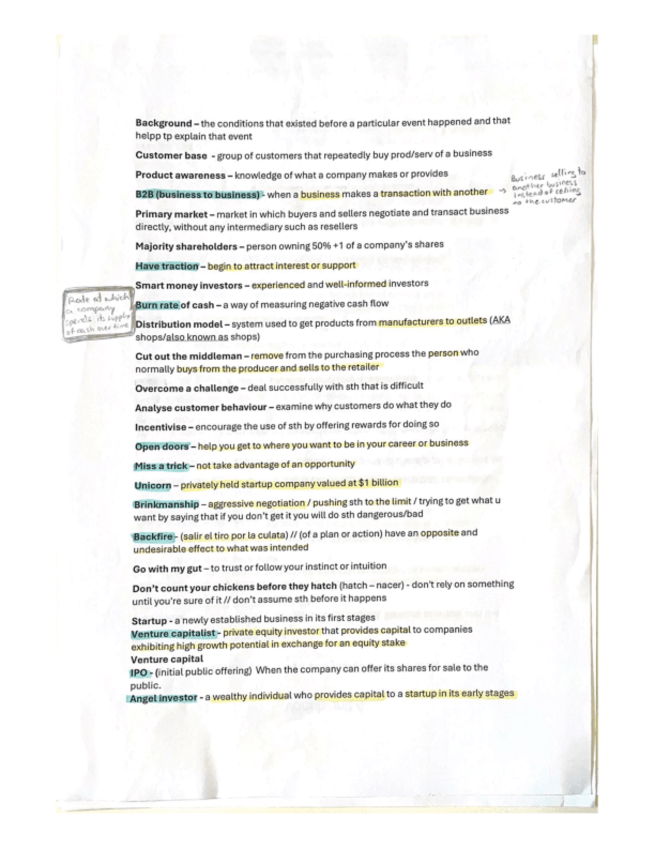 Background – the conditions that existed before a particular event happened and that
helpp tp explain that event
Customer base - group of customers that repeatedly buy prod/serv of a business
Product awareness – knowledge of what a company makes or provides
B2B (business to business) - when a business makes a transaction with another
→ Business selling to
another business
instead of selling
to the customer
Primary market – market in which buyers and sellers negotiate and transact business
directly, without any intermediary such as resellers
Majority shareholders – person owning 50% +1 of a company's shares
Have traction – begin to attract interest or support
Smart money investors – experienced and well-informed investors
Rate at which
a company
spends its supply
of cash over time
Burn rate of cash – a way of measuring negative cash flow
Distribution model – system used to get products from manufacturers to outlets (AKA
shops/also known as shops)
Cut out the middleman – remove from the purchasing process the person who
normally buys from the producer and sells to the retailer
Overcome a challenge – deal successfully with sth that is difficult
Analyse customer behaviour – examine why customers do what they do
Incentivise – encourage the use of sth by offering rewards for doing so
Open doors – help you get to where you want to be in your career or business
Miss a trick – not take advantage of an opportunity
Unicorn – privately held startup company valued at $1 billion
Brinkmanship – aggressive negotiation / pushing sth to the limit / trying to get what u
want by saying that if you don't get it you will do sth dangerous/bad
Backfire - (salir el tiro por la culata) // (of a plan or action) have an opposite and
undesirable effect to what was intended
Go with my gut – to trust or follow your instinct or intuition
Don't count your chickens before they hatch (hatch – nacer) - don't rely on something
until you're sure of it // don't assume sth before it happens
Startup - a newly established business in its first stages
Venture capitalist - private equity investor that provides capital to companies
exhibiting high growth potential in exchange for an equity stake
Venture capital
IPO - (initial public offering) When the company can offer its shares for sale to the
public.
Angel investor - a wealthy individual who provides capital to a startup in its early stages